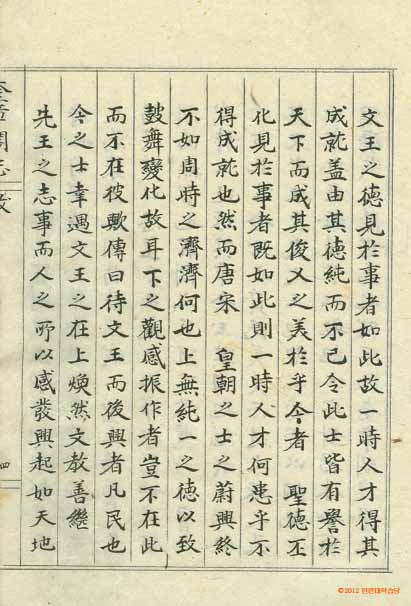 文王之德見於事者如此故一時人才得其
成就盖由其德純而不已令此士皆有譽於
天下而成其俊乂之美於乎今者 聖德丕
化見於事者既如此則一時人才何患乎不
得成就也然而唐宋 皇朝之士之蔚興終
不如周時之濟濟何也上無純一之德以致
鼓舞變化故耳下之觀感振作者豈不在此
而不在彼歟傳曰待文王而後興者凡民也
今之士幸遇文王之在上煥然文教善繼
先王之志事而人之所以感發興起如天地
奎章閣志
四
©2012 한전대학습당